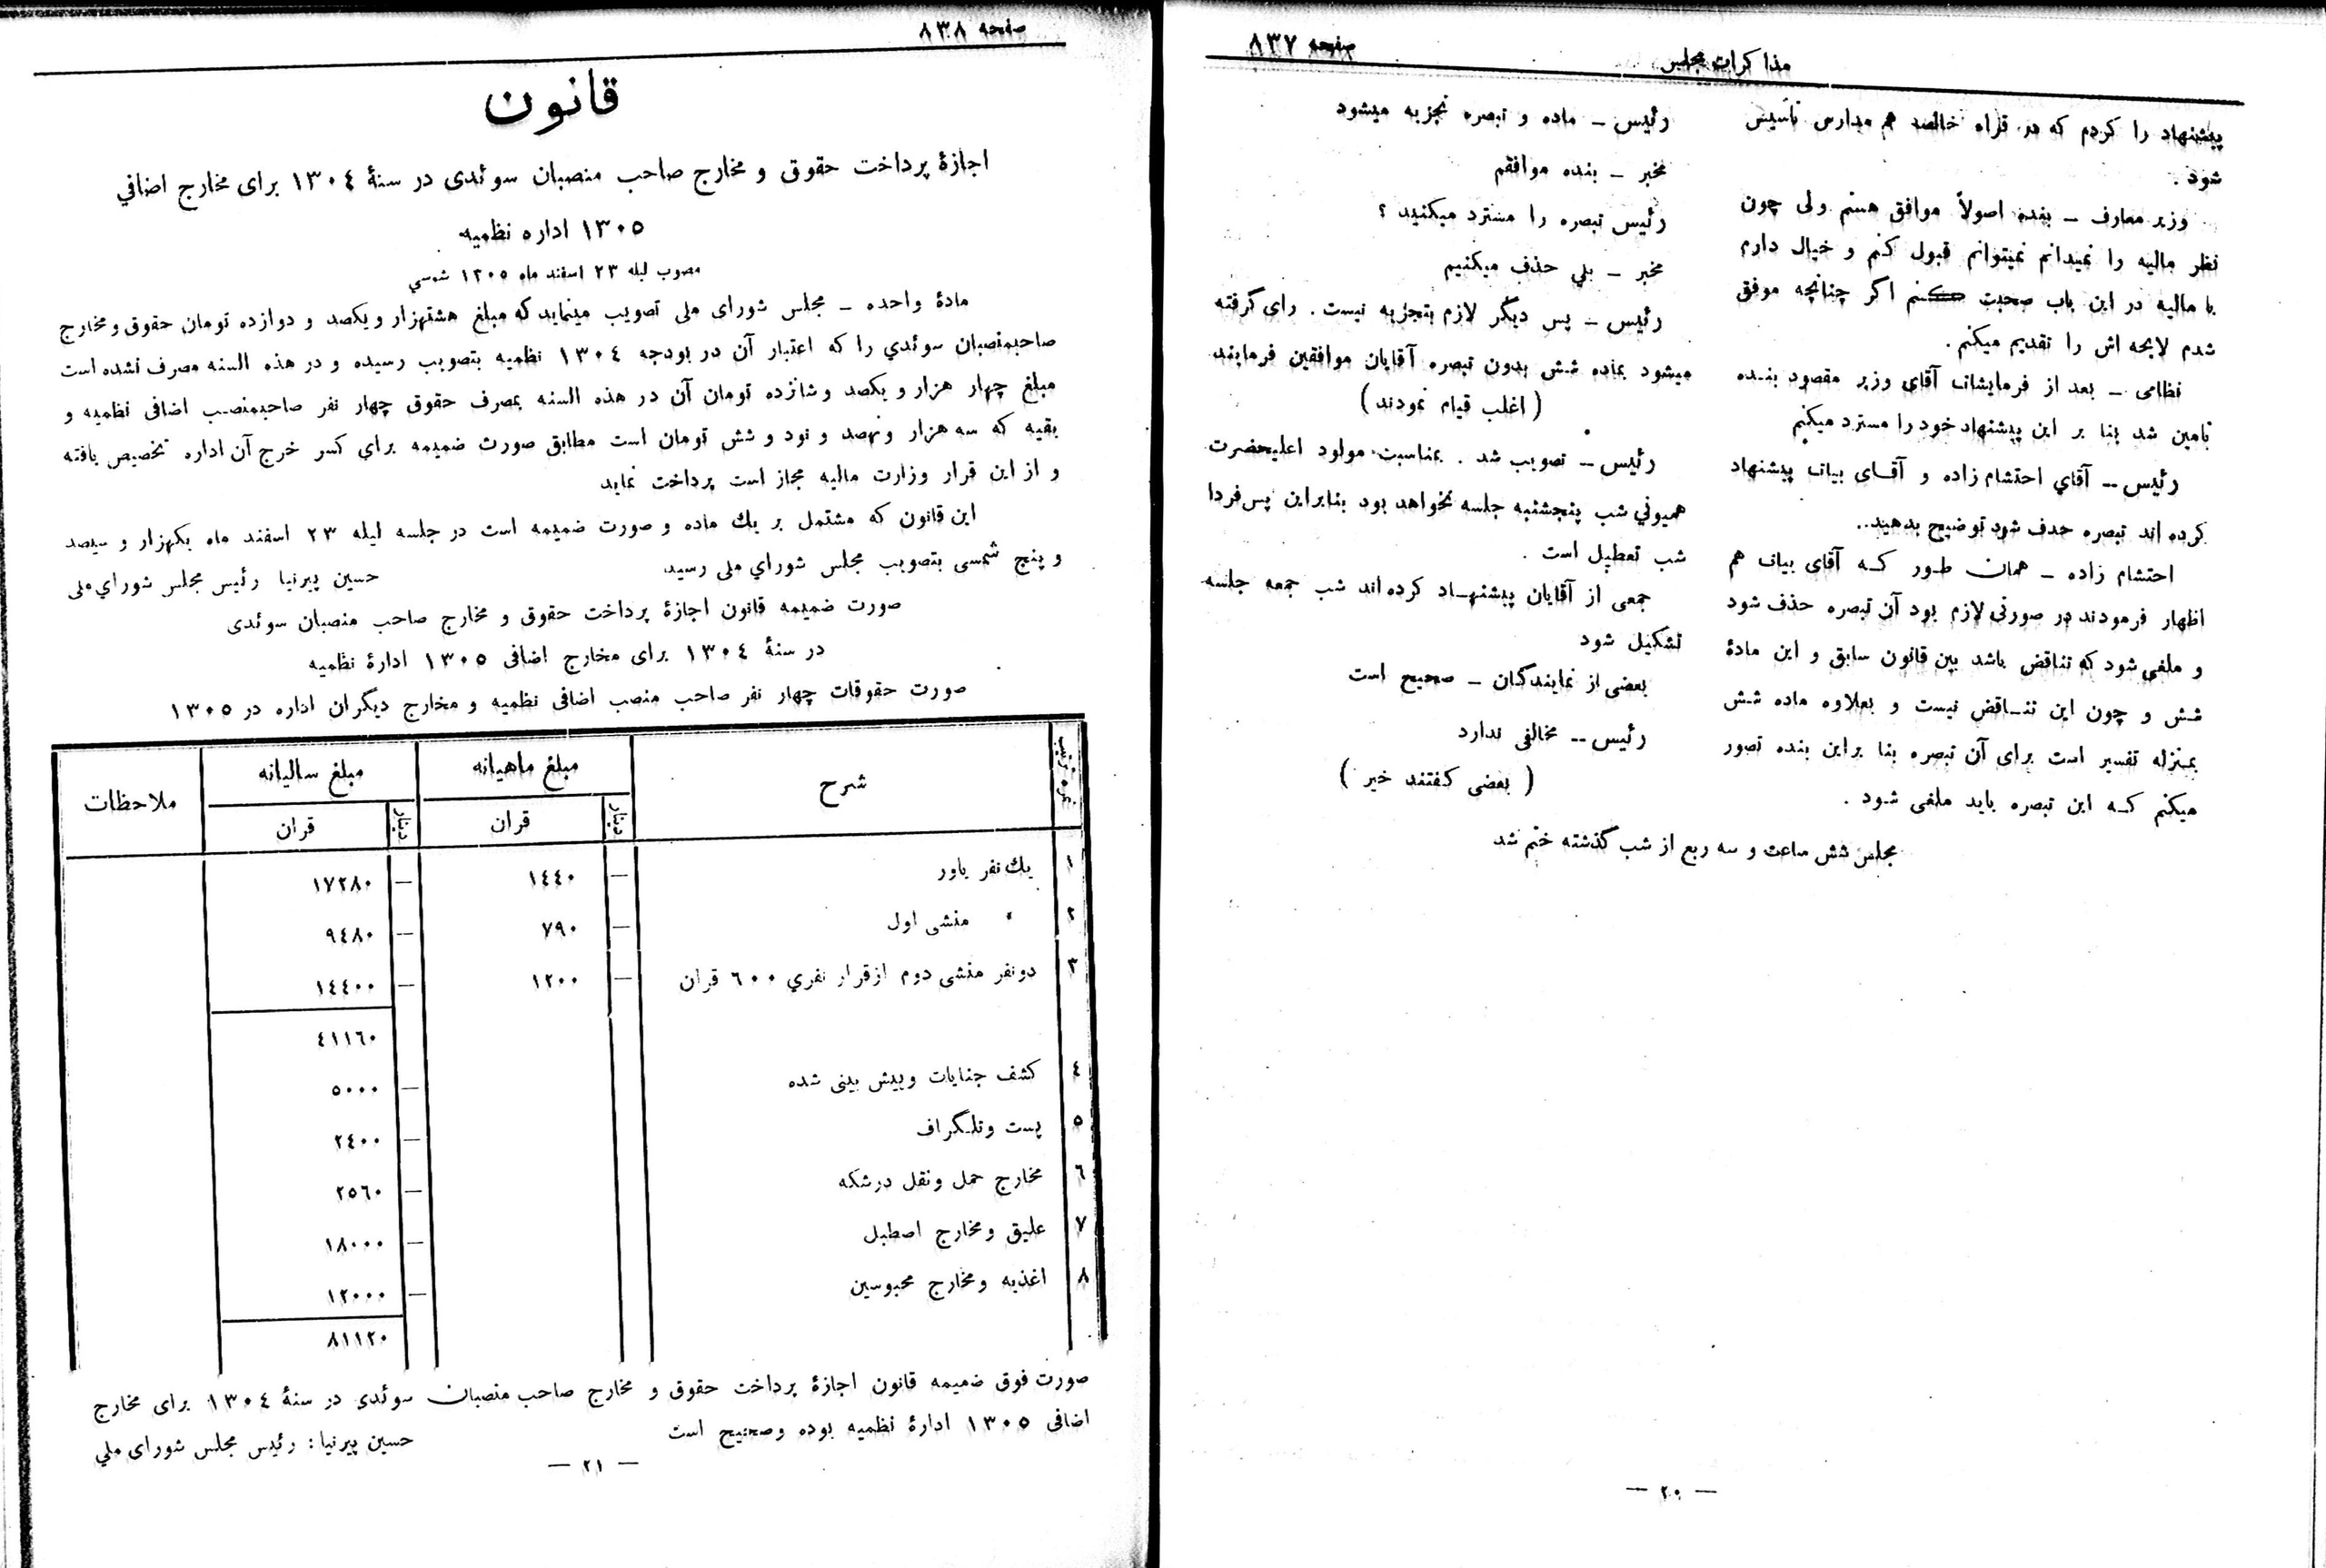 مذاکرات مجلس
صفحه ۸۳۷
پیشنهاد را کردم که در قراء خالصه هم مدارس تأسیس
شود .
وزیر معارف ـ بنده اصولاً موافق هستم ولی چون
نظر مالیه را نمیدانم نمیتوانم قبول کنم و خیال دارم
با مالیه در این باب صحبت کنم اگر چنانچه موفق
شدم لایحه اش را تقدیم میکنم .
نظامی ـ بعد از فرمایشات آقای وزیر مقصود بنده
تامین شد بنا بر این پیشنهاد خود را مسترد میکنم
رئیس ـ آقای احتشام زاده و آقای بیات پیشنهاد
کرده اند تبصره حذف شود توضیح بدهید..
احتشام زاده ـ همان طور که آقای بیات هم
اظهار فرمودند در صورتی لازم بود آن تبصره حذف شود
و ملغی شود که تناقض باشد بین قانون سابق و این مادهٔ
شش و چون این تناقض نیست و بعلاوه ماده شش
بمنزله تفسیر است برای آن تبصره بنا براین بنده تصور
میکنم که این تبصره باید ملغی شود .
رئیس ـ ماده و تبصره تجزیه میشود
مخبر ـ بنده موافقم
رئیس تبصره را مسترد میکنید ؟
مخبر ـ بلي حذف میکنیم
رئیس ـ پس دیگر لازم بتجزیه نیست . رای گرفته
میشود بماده شش بدون تبصره آقایان موافقین فرمایند
( اغلب قیام نمودند )
رئیس ـ تصویب شد . بمناسبت مولود اعلیحضرت
همیونی شب پنجشنبه جلسه نخواهد بود بنابراین پس‌فردا
شب تعطیل است .
جمعی از آقایان پیشنهاد کرده‌اند شب جمعه جلسه
تشکیل شود
بعضی از نمایندگان ـ صحیح است
رئیس ـ مخالفی ندارد
( بعضی گفتند خیر )
مجلس شش ساعت و سه ربع از شب گذشته ختم شد
— ۲۰ —
صفحه ۸۳۸
قانون
اجازهٔ پرداخت حقوق و مخارج صاحب منصبان سوئدی در سنهٔ ۱۳۰٤ برای مخارج اضافي
۱۳۰٥ اداره نظمیه
مصوب لیله ۲۳ اسفند ماه ۱۳۰٥ شمسي
مادهٔ واحده ـ مجلس شورای ملی تصویب مینماید که مبلغ هشتهزار و یکصد و دوازده تومان حقوق و مخارج
صاحبمنصبان سوئدي را که اعتبار آن در بودجه ۱۳۰٤ نظمیه بتصویب رسیده و در هذه السنه مصرف نشده است
مبلغ چهار هزار و یکصد و شانزده تومان آن در هذه السنه بمصرف حقوق چهار نفر صاحبمنصب اضافی نظمیه و
بقیه که سه هزار و نهصد و نود و شش تومان است مطابق صورت ضمیمه براي کسر خرج آن اداره تخصیص یافته
و از این قرار وزارت مالیه مجاز است پرداخت نماید
این قانون که مشتمل بر یك ماده و صورت ضمیمه است در جلسه لیله ۲۳ اسفند ماه یکهزار و سیصد
و پنج شمسی بتصویب مجلس شوراي ملی رسید حسین پیرنیا رئیس مجلس شوراي ملی
صورت ضمیمه قانون اجازهٔ پرداخت حقوق و مخارج صاحب منصبان سوئدی
در سنهٔ ۱۳۰٤ برای مخارج اضافی ۱۳۰٥ ادارهٔ نظمیه
صورت حقوقات چهار نفر صاحب منصب اضافی نظمیه و مخارج دیگران اداره در ۱۳۰٥
نمره ترتیب شرح مبلغ ماهیانه مبلغ سالیانه ملاحظات
دینار قران دینار قران
۱ یك نفر یاور — ۱٤٤۰ — ۱۷۲۸۰
۲ » منشی اول — ۷۹۰ — ۹٤۸۰
۳ دو نفر منشی دوم ازقرار نفري ٦۰۰ قران — ۱۲۰۰ — ۱٤٤۰۰
٤۱۱٦۰
٤ کشف جنایات و پیش بینی شده — ٥۰۰۰
٥ پست و تلگراف — ۲٤۰۰
٦ مخارج حمل و نقل درشکه — ۲٥٦۰
۷ علیق و مخارج اصطبل — ۱۸۰۰۰
۸ اغذیه و مخارج محبوسین — ۱۲۰۰۰
۸۱۱۲۰
صورت فوق ضمیمه قانون اجازهٔ پرداخت حقوق و مخارج صاحب منصبان سوئدی در سنهٔ ۱۳۰٤ برای مخارج
اضافی ۱۳۰٥ ادارهٔ نظمیه بوده و صحیح است حسین پیرنیا: رئیس مجلس شورای ملي
— ۲۱ —